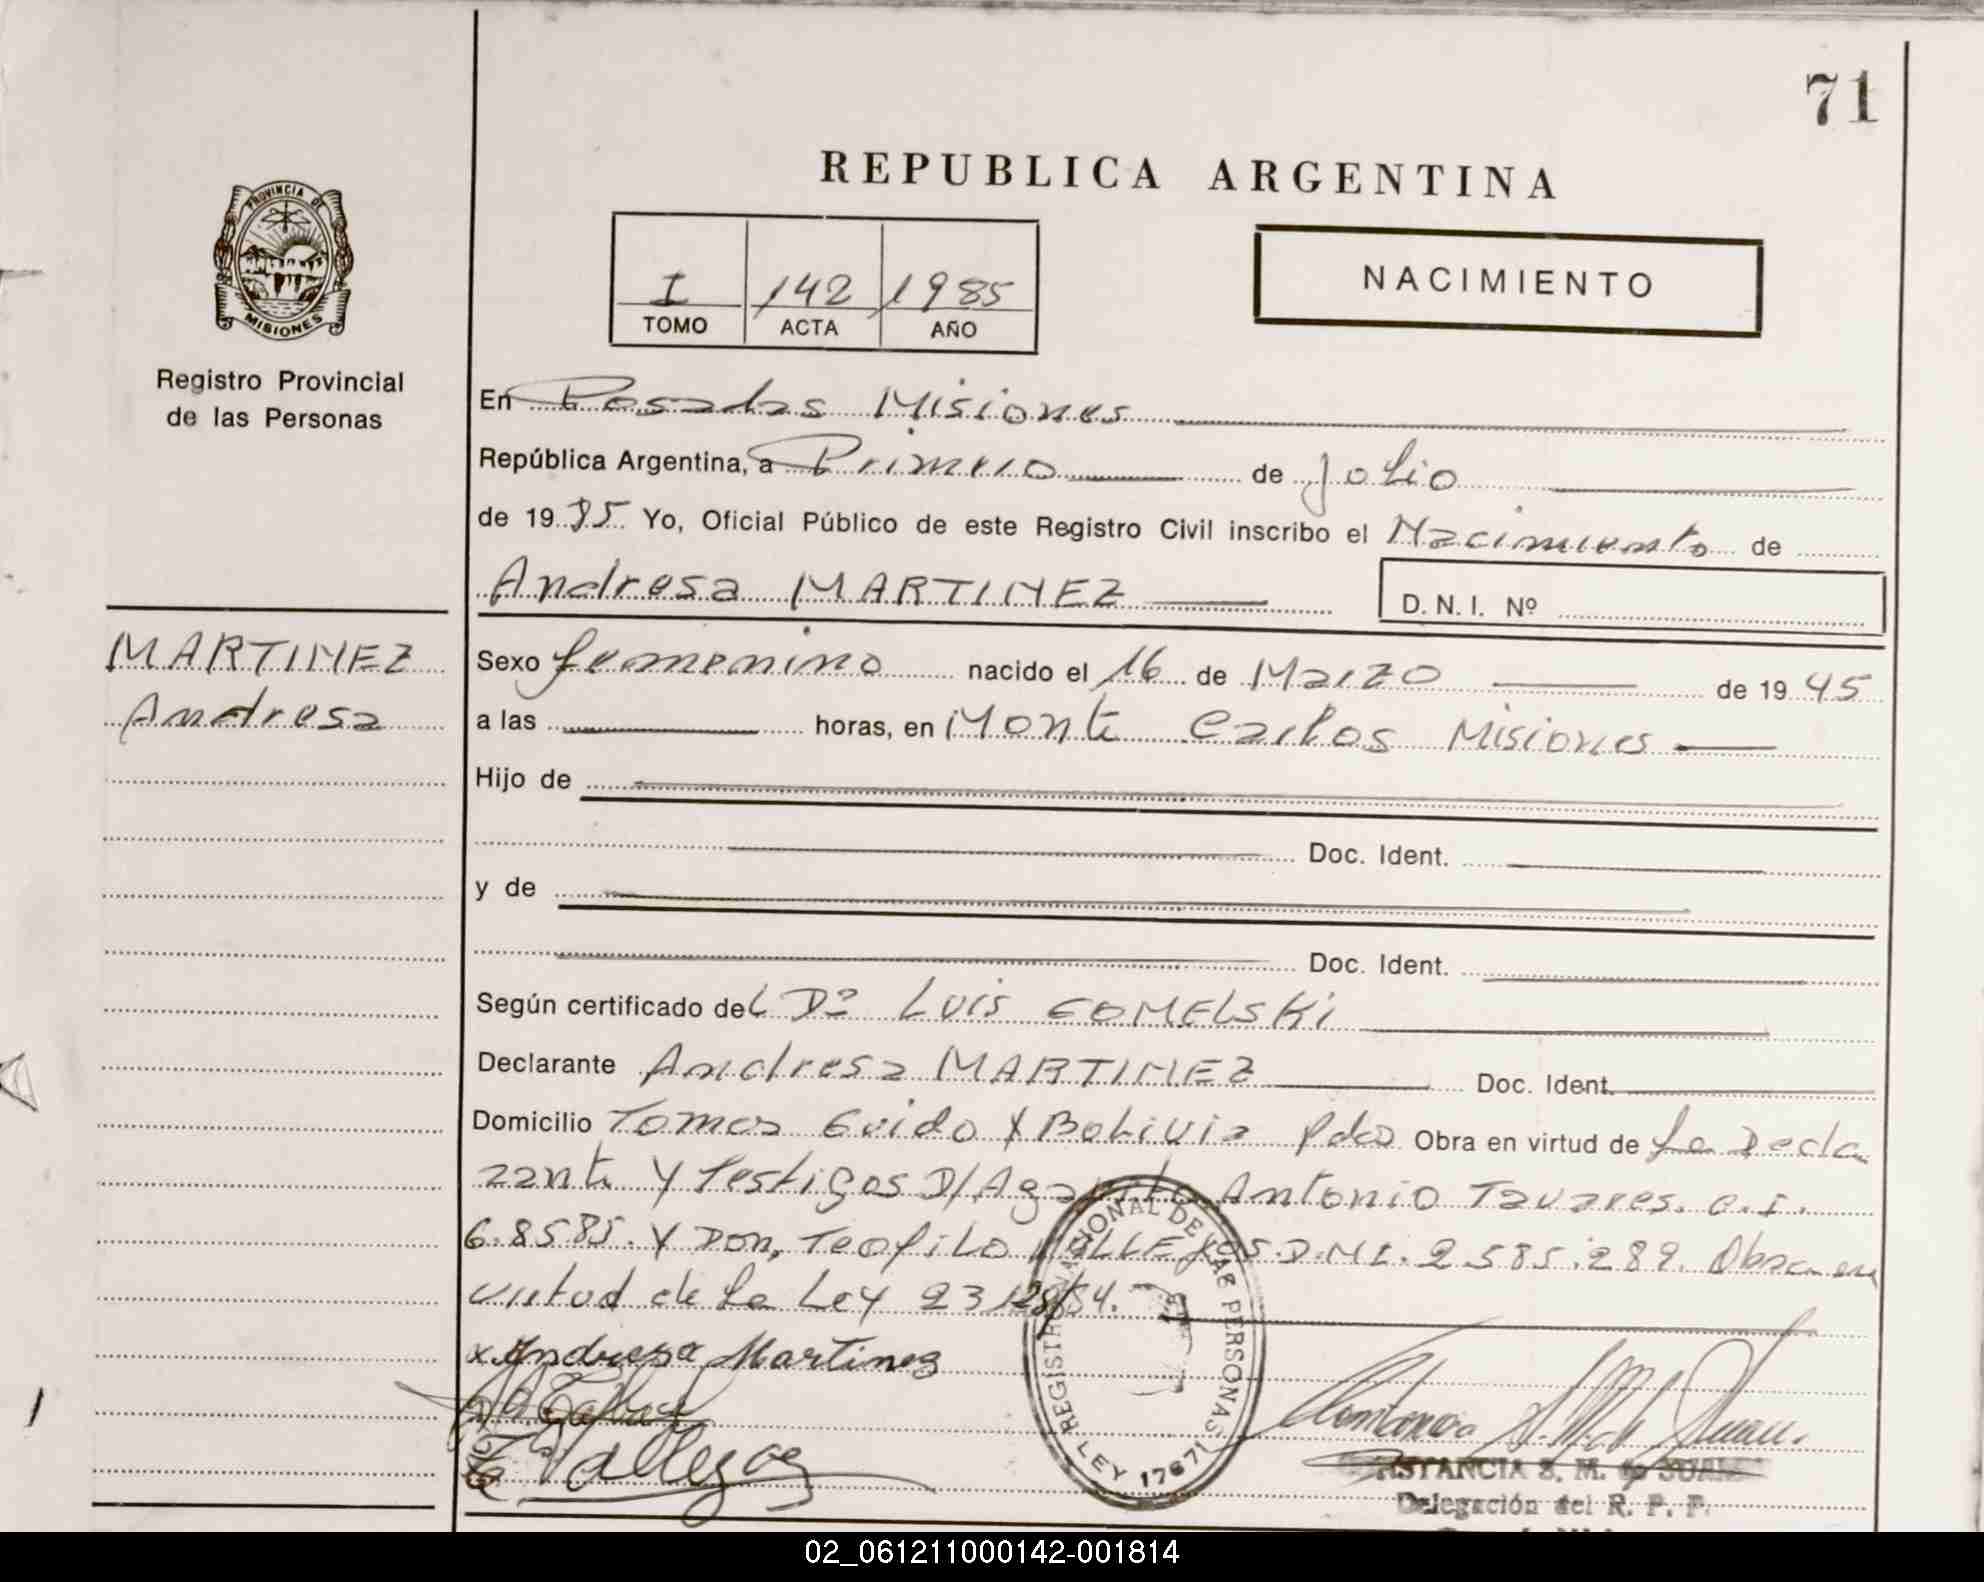 71
REPUBLICA ARGENTINA
PROVINCIA DE
MISIONES
Registro Provincial
de las Personas
I 142 1985
TOMO ACTA AÑO
NACIMIENTO
En Posadas Misiones
República Argentina, a Primero de Jolio
de 19 85 Yo, Oficial Público de este Registro Civil inscribo el Nacimiento de
Andresa MARTINEZ
D.N.I. Nº
MARTINEZ
Andresa
Sexo femenino nacido el 16 de Marzo de 19 45
a las horas, en Monte Carlos Misiones
Hijo de
Doc. Ident.
y de
Doc. Ident.
Según certificado del Dº Luis COMELSKi
Declarante Andresa MARTINEZ Doc. Ident.
Domicilio Tomas Guido y Bolivia Pdas Obra en virtud de La Decla
rante y Testigos D/Agapito Antonio Tavares. C.I.
6.8585. y Don, Teofilo VALLEJOS. D.N.I. 2.585.289. Obra en
virtud de La Ley 23128/84.
x Andresa Martinez
Vallejos
REGISTRO NACIONAL DE LAS PERSONAS
LEY 17671
CONSTANCIA S. M. de JUANI
Delegación del R. P. P.
02_061211000142-001814